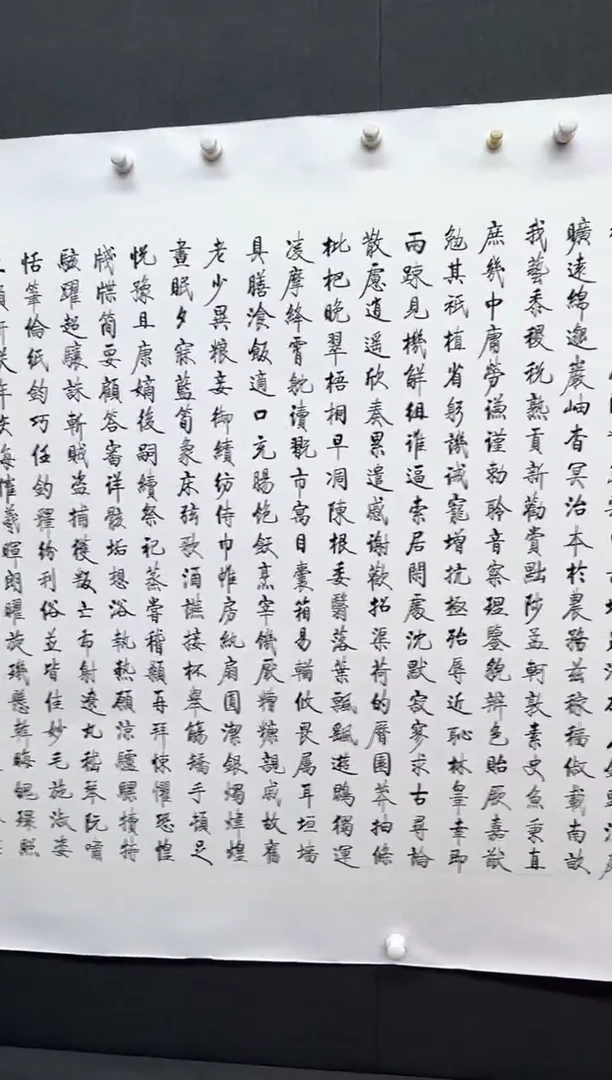 曠遠綿邈巖岫杳冥治本於農務茲稼穡俶載南畝
我藝黍稷稅熟貢新勸賞黜陟孟軻敦素史魚秉直
庶幾中庸勞謙謹勑聆音察理鑒貌辨色貽厥嘉猷
勉其祗植省躬譏誡寵增抗極殆辱近恥林皋幸即
兩疎見機解組誰逼索居閒處沈默寂寥求古尋論
散慮逍遙欣奏累遣慼謝歡招渠荷的曆園莽抽條
枇杷晚翠梧桐早凋陳根委翳落葉飄颻遊鵾獨運
凌摩絳霄耽讀翫市寓目囊箱易輶攸畏屬耳垣墻
具膳飡飯適口充腸飽飫烹宰饑厭糟糠親戚故舊
老少異粮妾御績紡侍巾帷房紈扇圓潔銀燭煒煌
晝眠夕寐藍筍象床弦歌酒讌接杯舉觴矯手頓足
悅豫且康嫡後嗣續祭祀蒸嘗稽顙再拜悚懼恐惶
牋牒簡要顧答審详骸垢想浴執熱願涼驢騾犢特
駭躍超驤誅斬賊盜捕獲叛亡布射遼丸嵇琴阮嘯
恬筆倫紙鈞巧任釣釋紛利俗並皆佳妙毛施淑姿
年矢每催羲暉朗曜旋璣懸斡晦魄環照